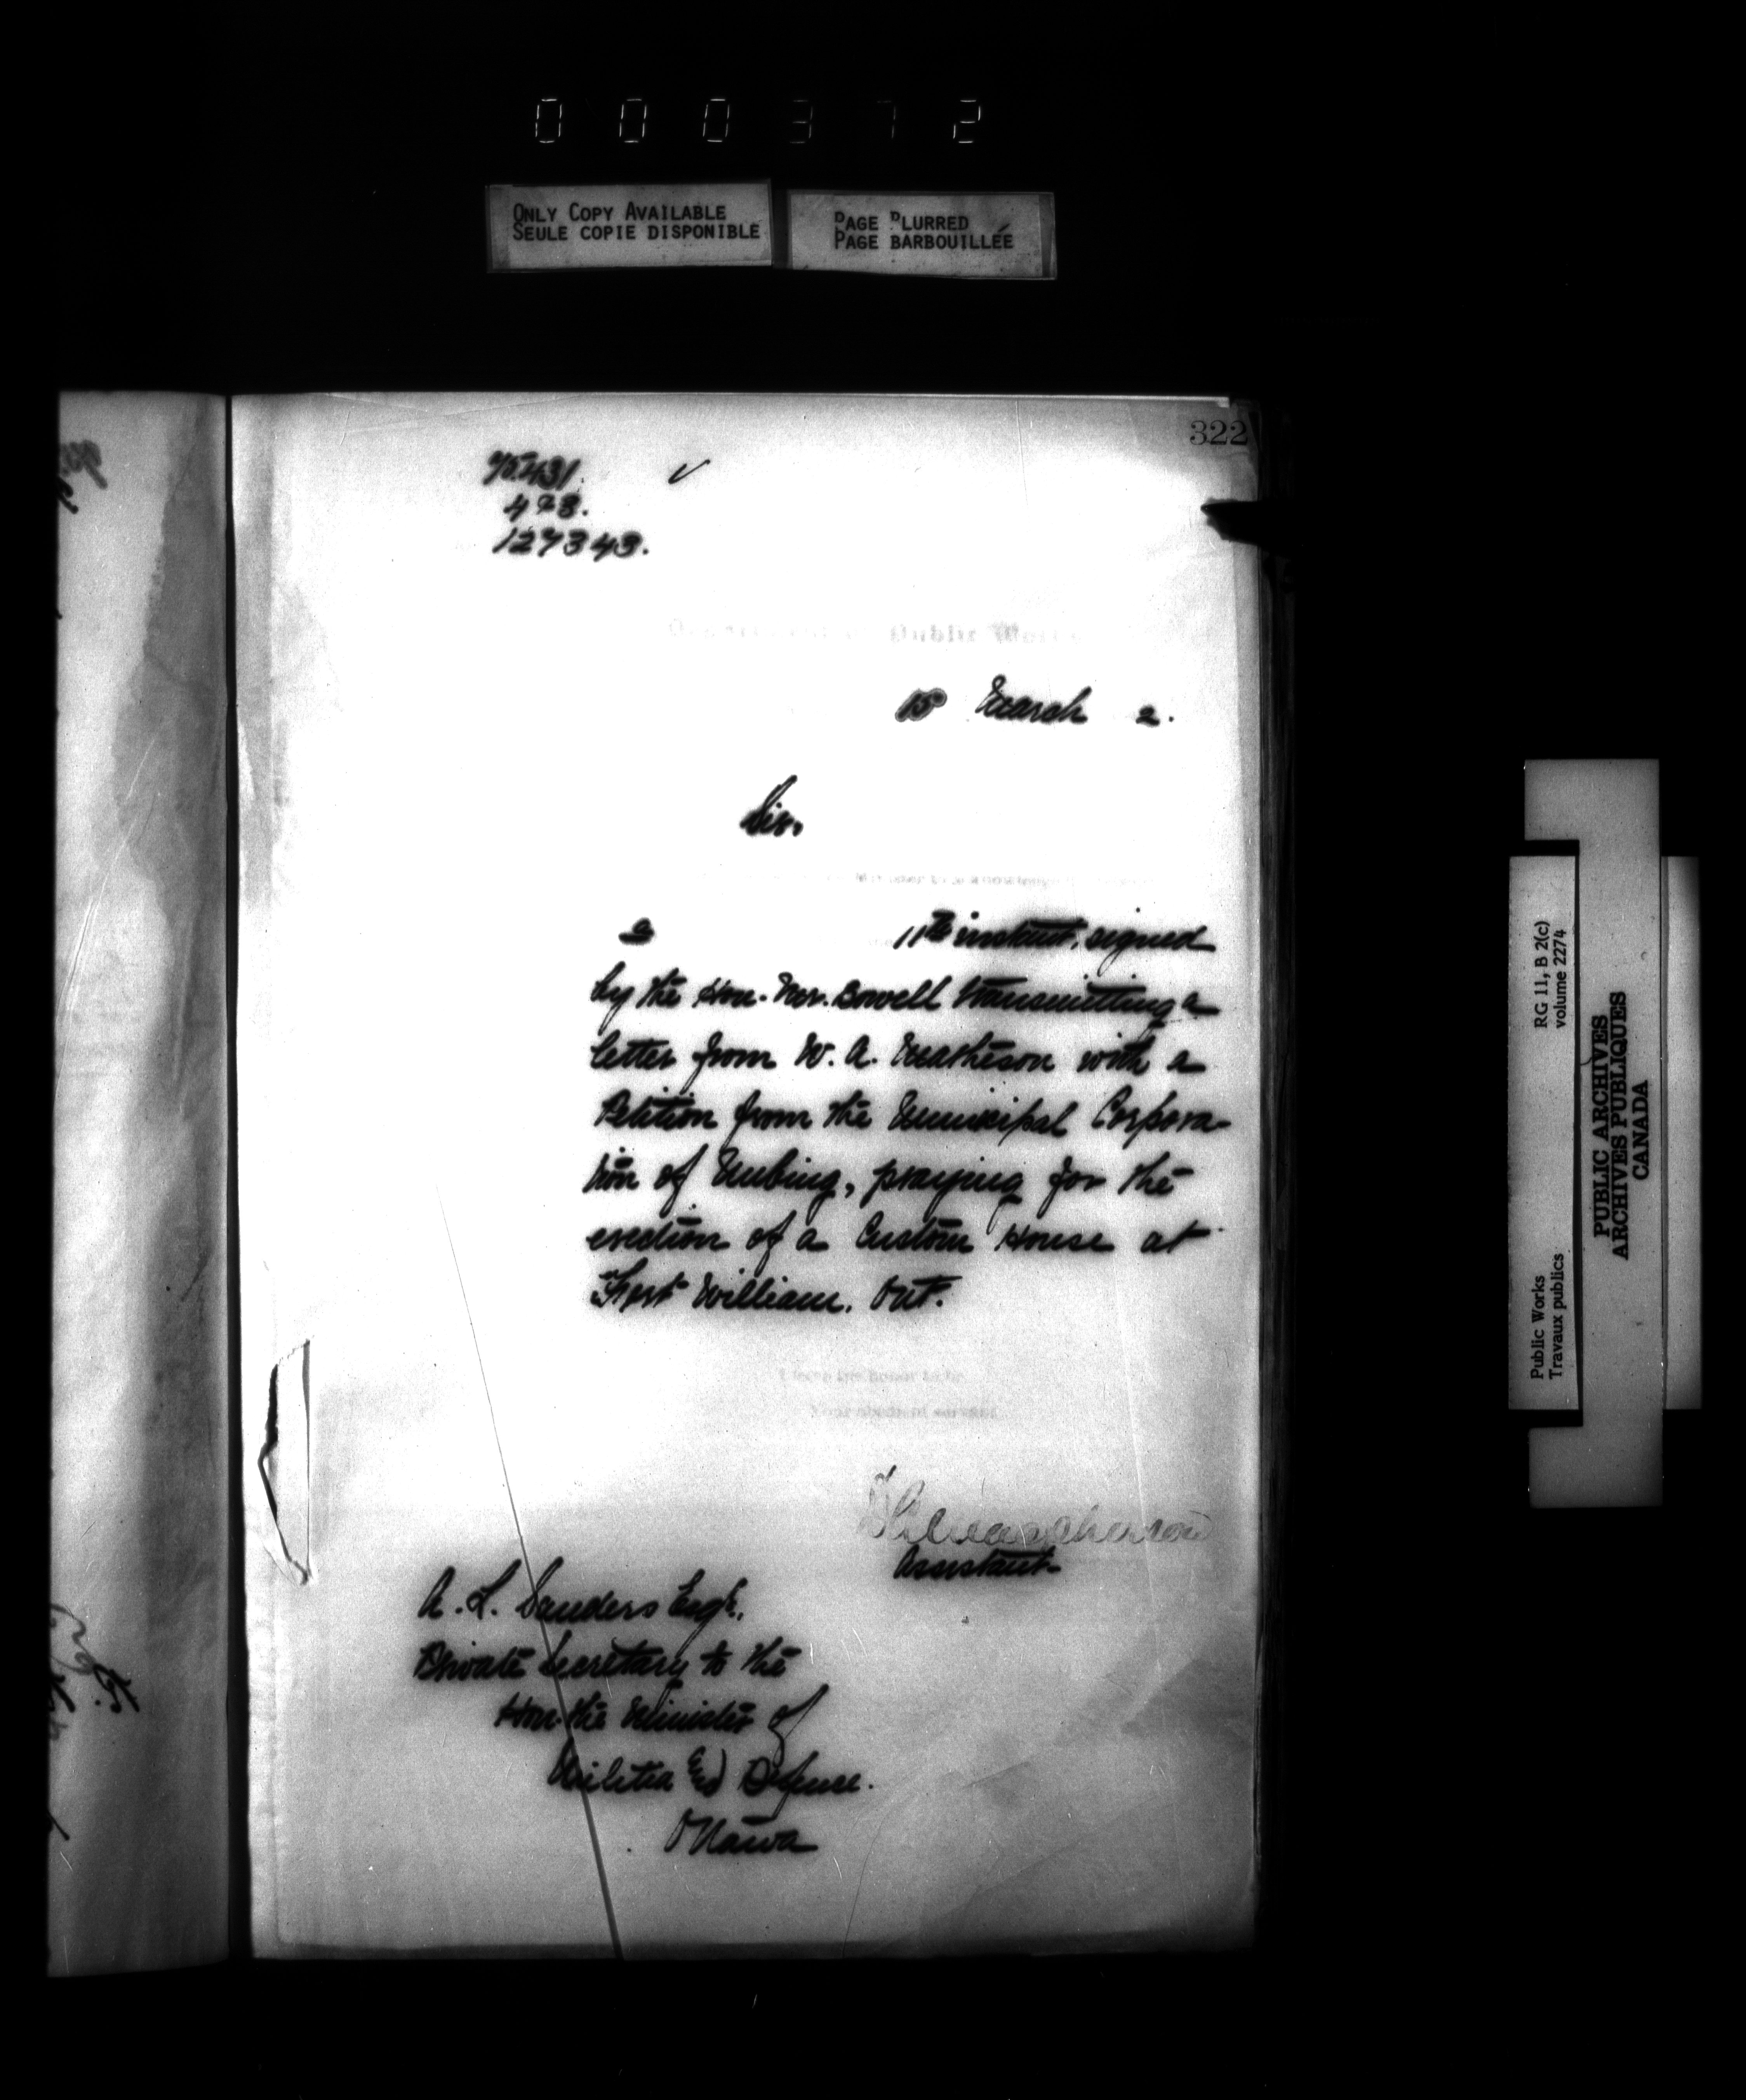 000372
ONLY COPY AVAILABLE
SEULE COPIE DISPONIBLE
PAGE BLURRED
PAGE BARBOUILLÉE
322
473.
127343.
Public
15 March 2.
Sir,
11th instant, signed
by the Hon. Mr. Bowell transmitting a
letter from W. A. Matheson with a
Petition from the Municipal Corpora-
tion of Neebing, praying for the
erection of a Custom House at
Fort William. Ont.
I have the honor to be
Your obedient servant
Assistant
A. L. Sanders Esq.,
Private Secretary to the
Hon. the Minister of
Militia & Defense.
Ottawa
RG 11, B 2(c)
volume 2274
Public Works
Travaux publics
PUBLIC ARCHIVES
ARCHIVES PUBLIQUES
CANADA